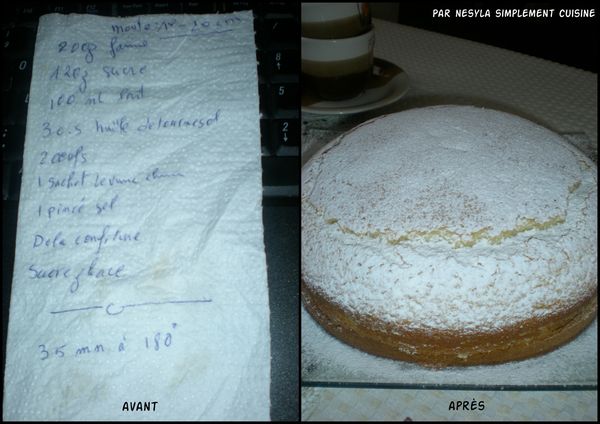 PAR NESYLA SIMPLEMENT CUISINE
20 cm
200g farine
120g sucre
100 ml lait
huile de tournesol
2 oeufs
1 sachet levure chim
1 pincé sel
De la confiture
Sucre glace
35 mn à 180°
AVANT
APRÈS